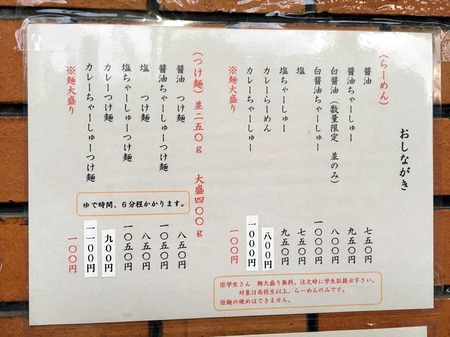 おしながき
(らーめん)
醤油 七五〇円
醤油ちゃーしゅー 九五〇円
白醤油(数量限定 並のみ) 八〇〇円
白醤油ちゃーしゅー 一〇〇〇円
塩 七五〇円
塩ちゃーしゅー 九五〇円
カレーらーめん 八〇〇円
カレーちゃーしゅー 一〇〇〇円
※麺大盛り 一〇〇円
※学生さん 麺大盛り無料。注文時に学生証提示下さい。
対象は高校生以上、らーめんのみです。
※麺の硬めはできません。
(つけ麺) 並二五〇g 大盛四〇〇g
醤油 つけ麺 八五〇円
醤油ちゃーしゅーつけ麺 一〇五〇円
塩 つけ麺 八五〇円
塩ちゃーしゅーつけ麺 一〇五〇円
カレーつけ麺 九〇〇円
カレーちゃーしゅーつけ麺 一一〇〇円
※麺大盛り 一〇〇円
ゆで時間、6分程かかります。